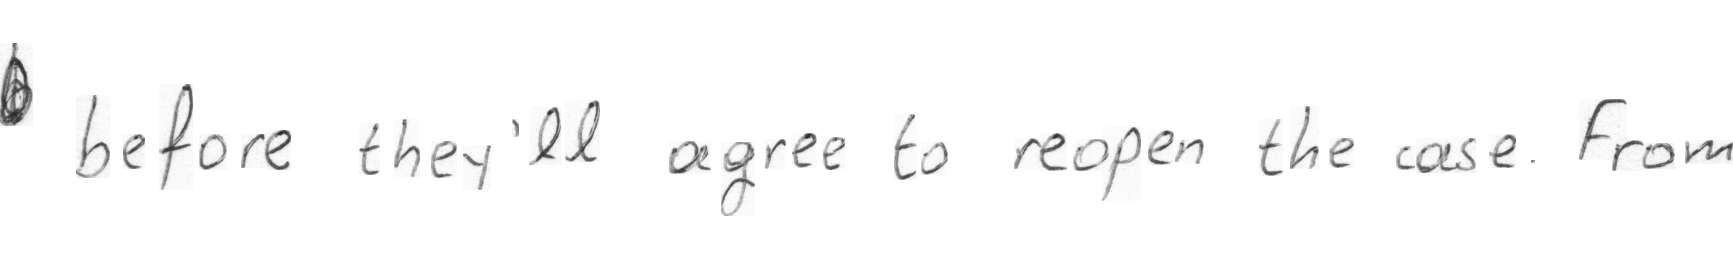 before they'll agree to reopen the case. From